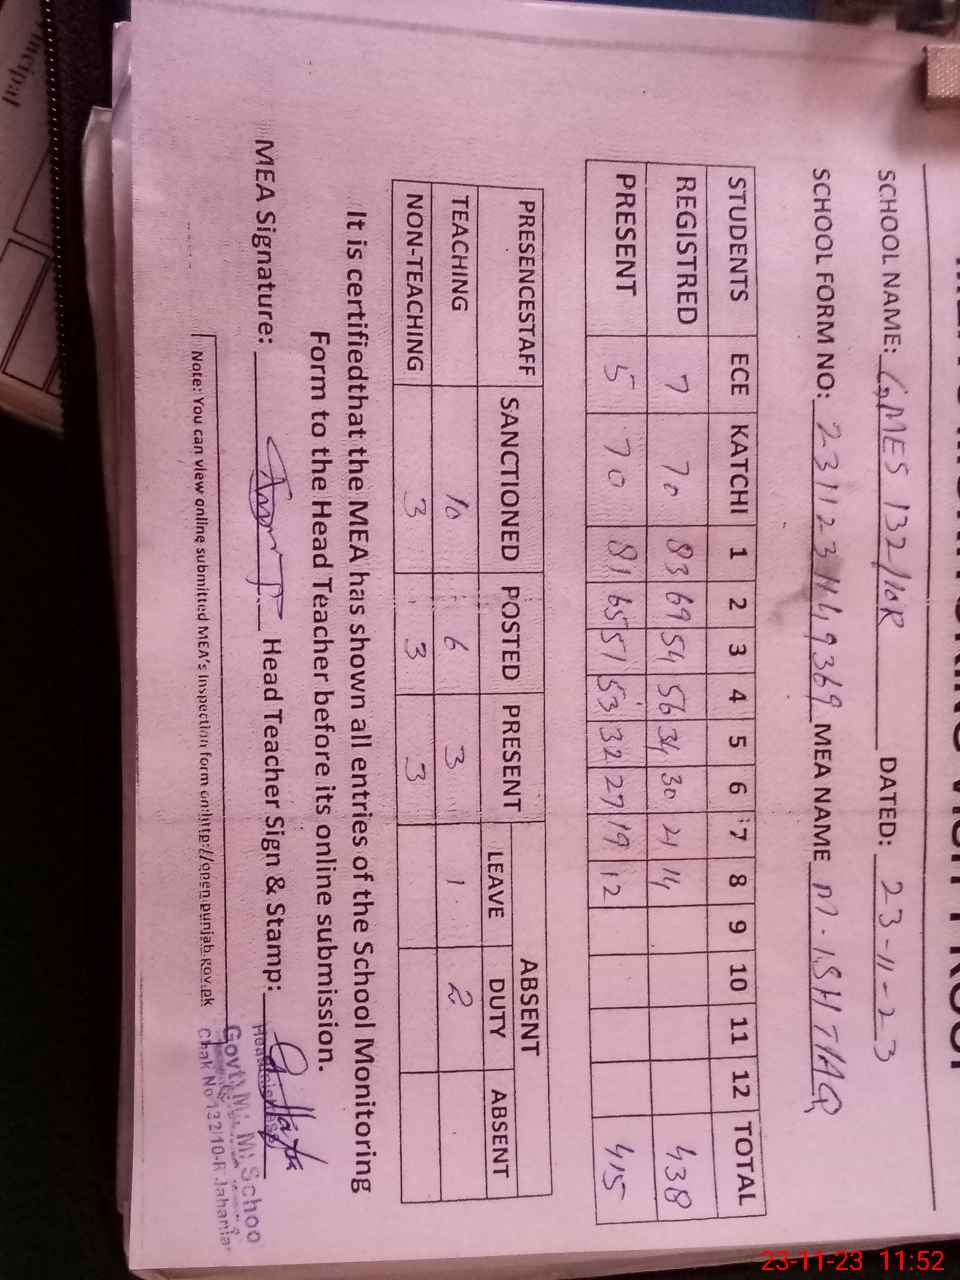 SCHOOL NAME: GMES 132/10R DATED: 23-11-23
SCHOOL FORM NO: 2311231149369 MEA NAME M. ISHTIAQ
STUDENTS ECE KATCHI 1 2 3 4 5 6 7 8 9 10 11 12 TOTAL
REGISTRED 7 70 83 69 54 56 34 30 21 14 438
PRESENT 5 70 81 65 51 53 32 27 19 12 415
PRESENCESTAFF SANCTIONED POSTED PRESENT ABSENT
LEAVE DUTY ABSENT
TEACHING 10 6 3 1 2
NON-TEACHING 3 3 3
It is certifiedthat the MEA has shown all entries of the School Monitoring
Form to the Head Teacher before its online submission.
MEA Signature: Head Teacher Sign & Stamp:
Govt. M. M. Schoo
Chak No 132/10-R Jahania
Note: You can view online submitted MEA's Inspection form on:http://open.punjab.gov.pk
ncipal
23-11-23 11:52